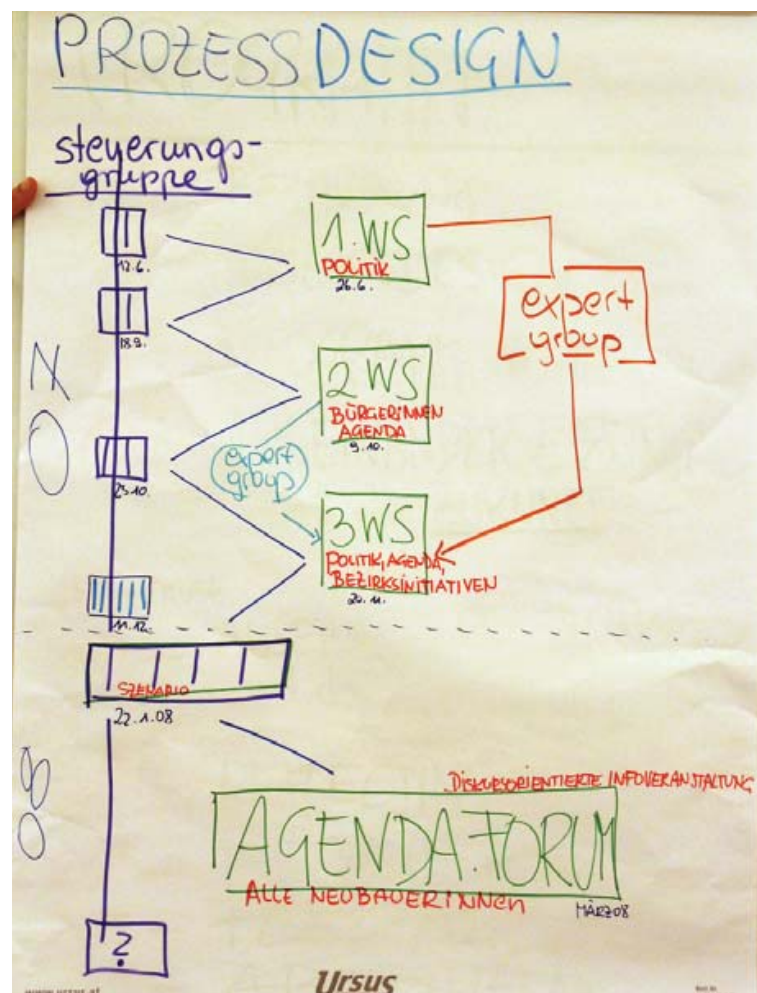 PROZESSDESIGN
steuerungs-
gruppe
12.6.
18.9.
23.10.
11.12.
07
1. WS
POLITIK
26.6.
2 WS
BÜRGERINNEN
AGENDA
9.10.
expert
group
3 WS
POLITIK, AGENDA,
BEZIRKSINITIATIVEN
expert
group
SZENARIO
22.1.08
08
DISKURSORIENTIERTE INFOVERANSTALTUNG
AGENDA.FORUM
ALLE NEUBAUERINNEN
MÄRZ08
?
Ursus